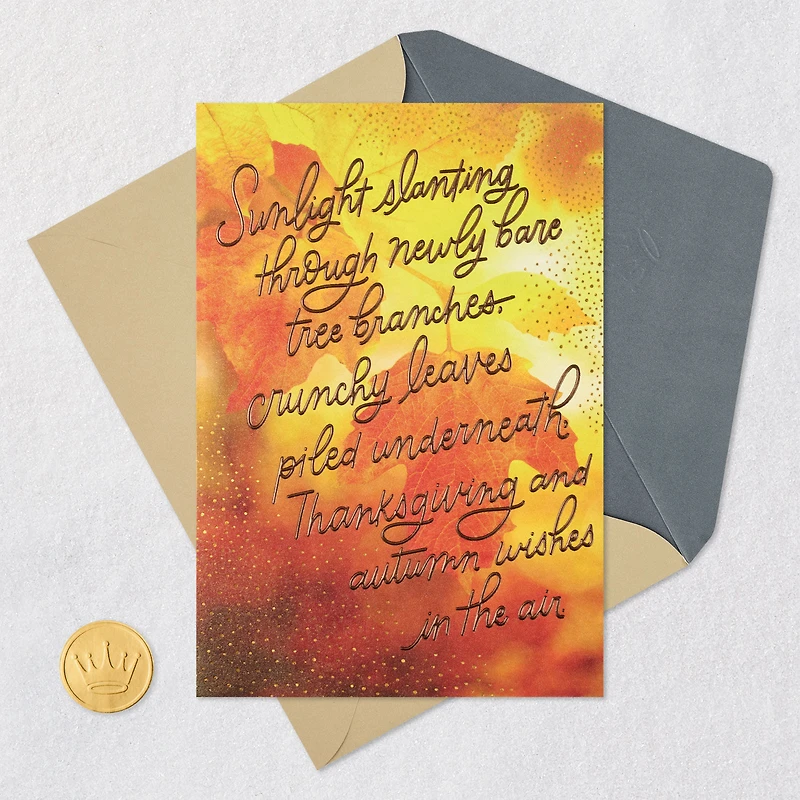 Sunlight slanting
through newly bare
tree branches,
crunchy leaves
piled underneath.
Thanksgiving and
autumn wishes
in the air.